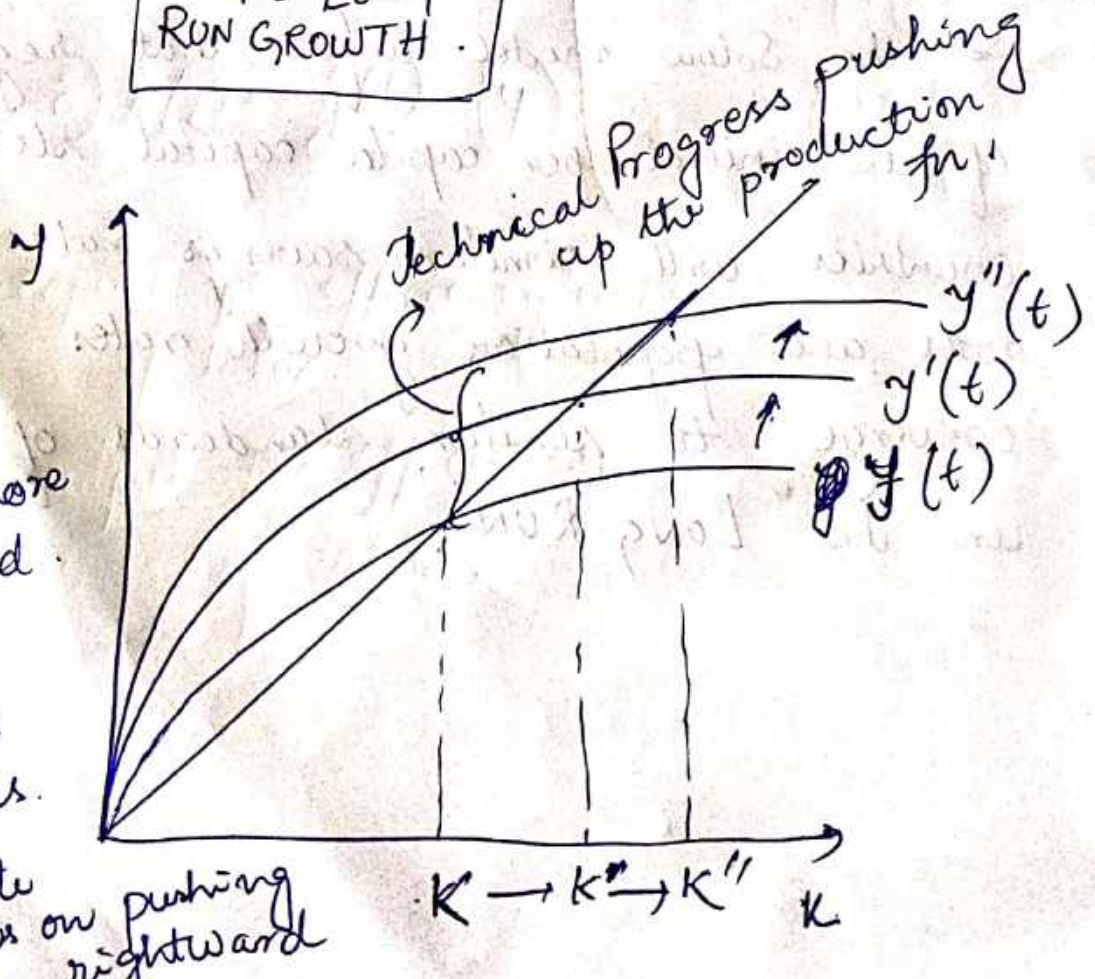 RUN GROWTH.
Technical Progress pushing
up the production
fn.
y
y''(t)
y'(t)
y(t)
K → K'' → K'' K
pushing
rightward
on